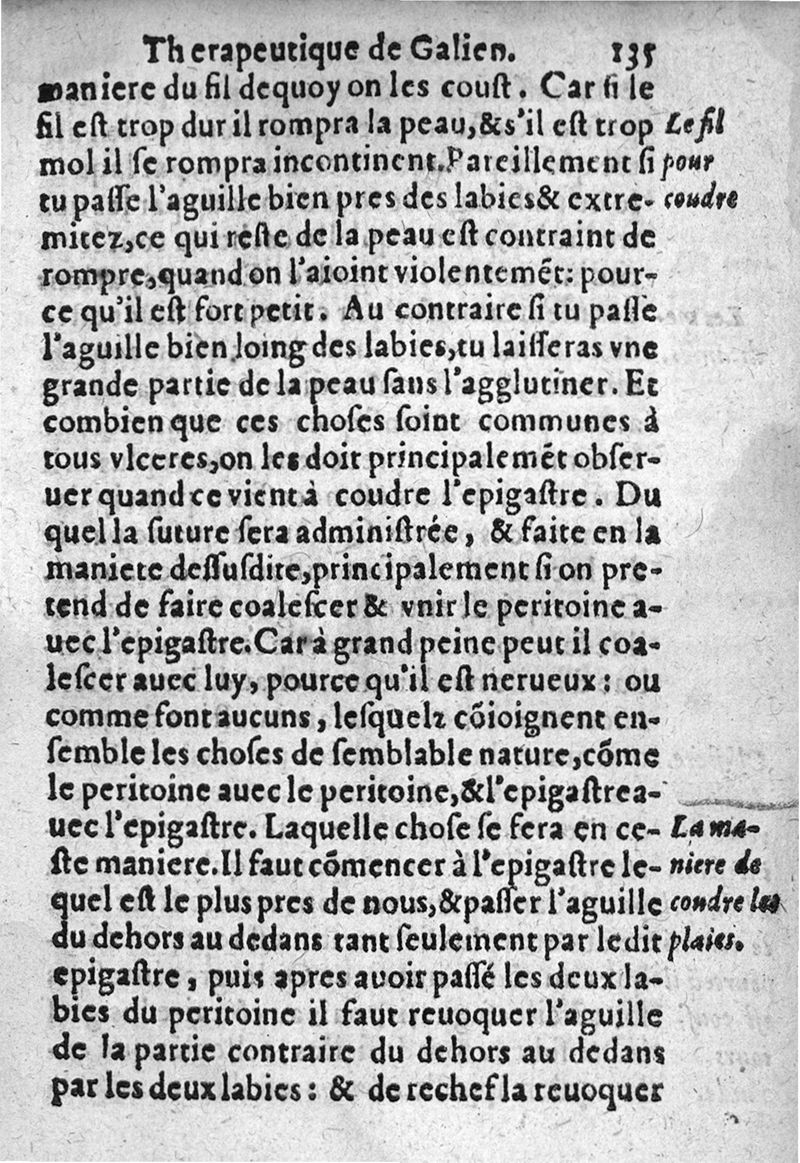 Therapeutique de Galien. 135
maniere du fil dequoy on les coust. Car si le
fil est trop dur il rompra la peau,&s'il est trop
mol il se rompra incontinent.Pareillement si
tu passe l'aguille bien pres des labies& extre-
mitez,ce qui reste de la peau est contraint de
rompre,quand on l'aioint violentemẽt: pour-
ce qu'il est fort petit. Au contraire si tu passe
l'aguille bien loing des labies,tu laisseras vne
grande partie de la peau sans l'agglutiner. Et
combien que ces choses soint communes à
tous vlceres,on les doit principalemẽt obser-
uer quand ce vient à coudre l'epigastre. Du
quel la suture sera administrée, & faite en la
maniete dessusdite,principalement si on pre-
tend de faire coalescer & vnir le peritoine a-
uec l'epigastre.Car à grand peine peut il coa-
lescer auec luy, pource qu'il est nerueux: ou
comme font aucuns, lesquelz cõioignent en-
semble les choses de semblable nature,cõme
le peritoine auec le peritoine,&l'epigastre a-
uec l'epigastre. Laquelle chose se fera en ce-
ste maniere.Il faut cõmencer à l'epigastre le-
quel est le plus pres de nous,&passer l'aguille
du dehors au dedans tant seulement par ledit
epigastre, puis apres avoir passé les deux la-
bies du peritoine il faut reuoquer l'aguille
de la partie contraire du dehors au dedans
par les deux labies: & de rechef la reuoquer
Le fil
pour
coudre
La ma-
niere de
coudre les
plaies.